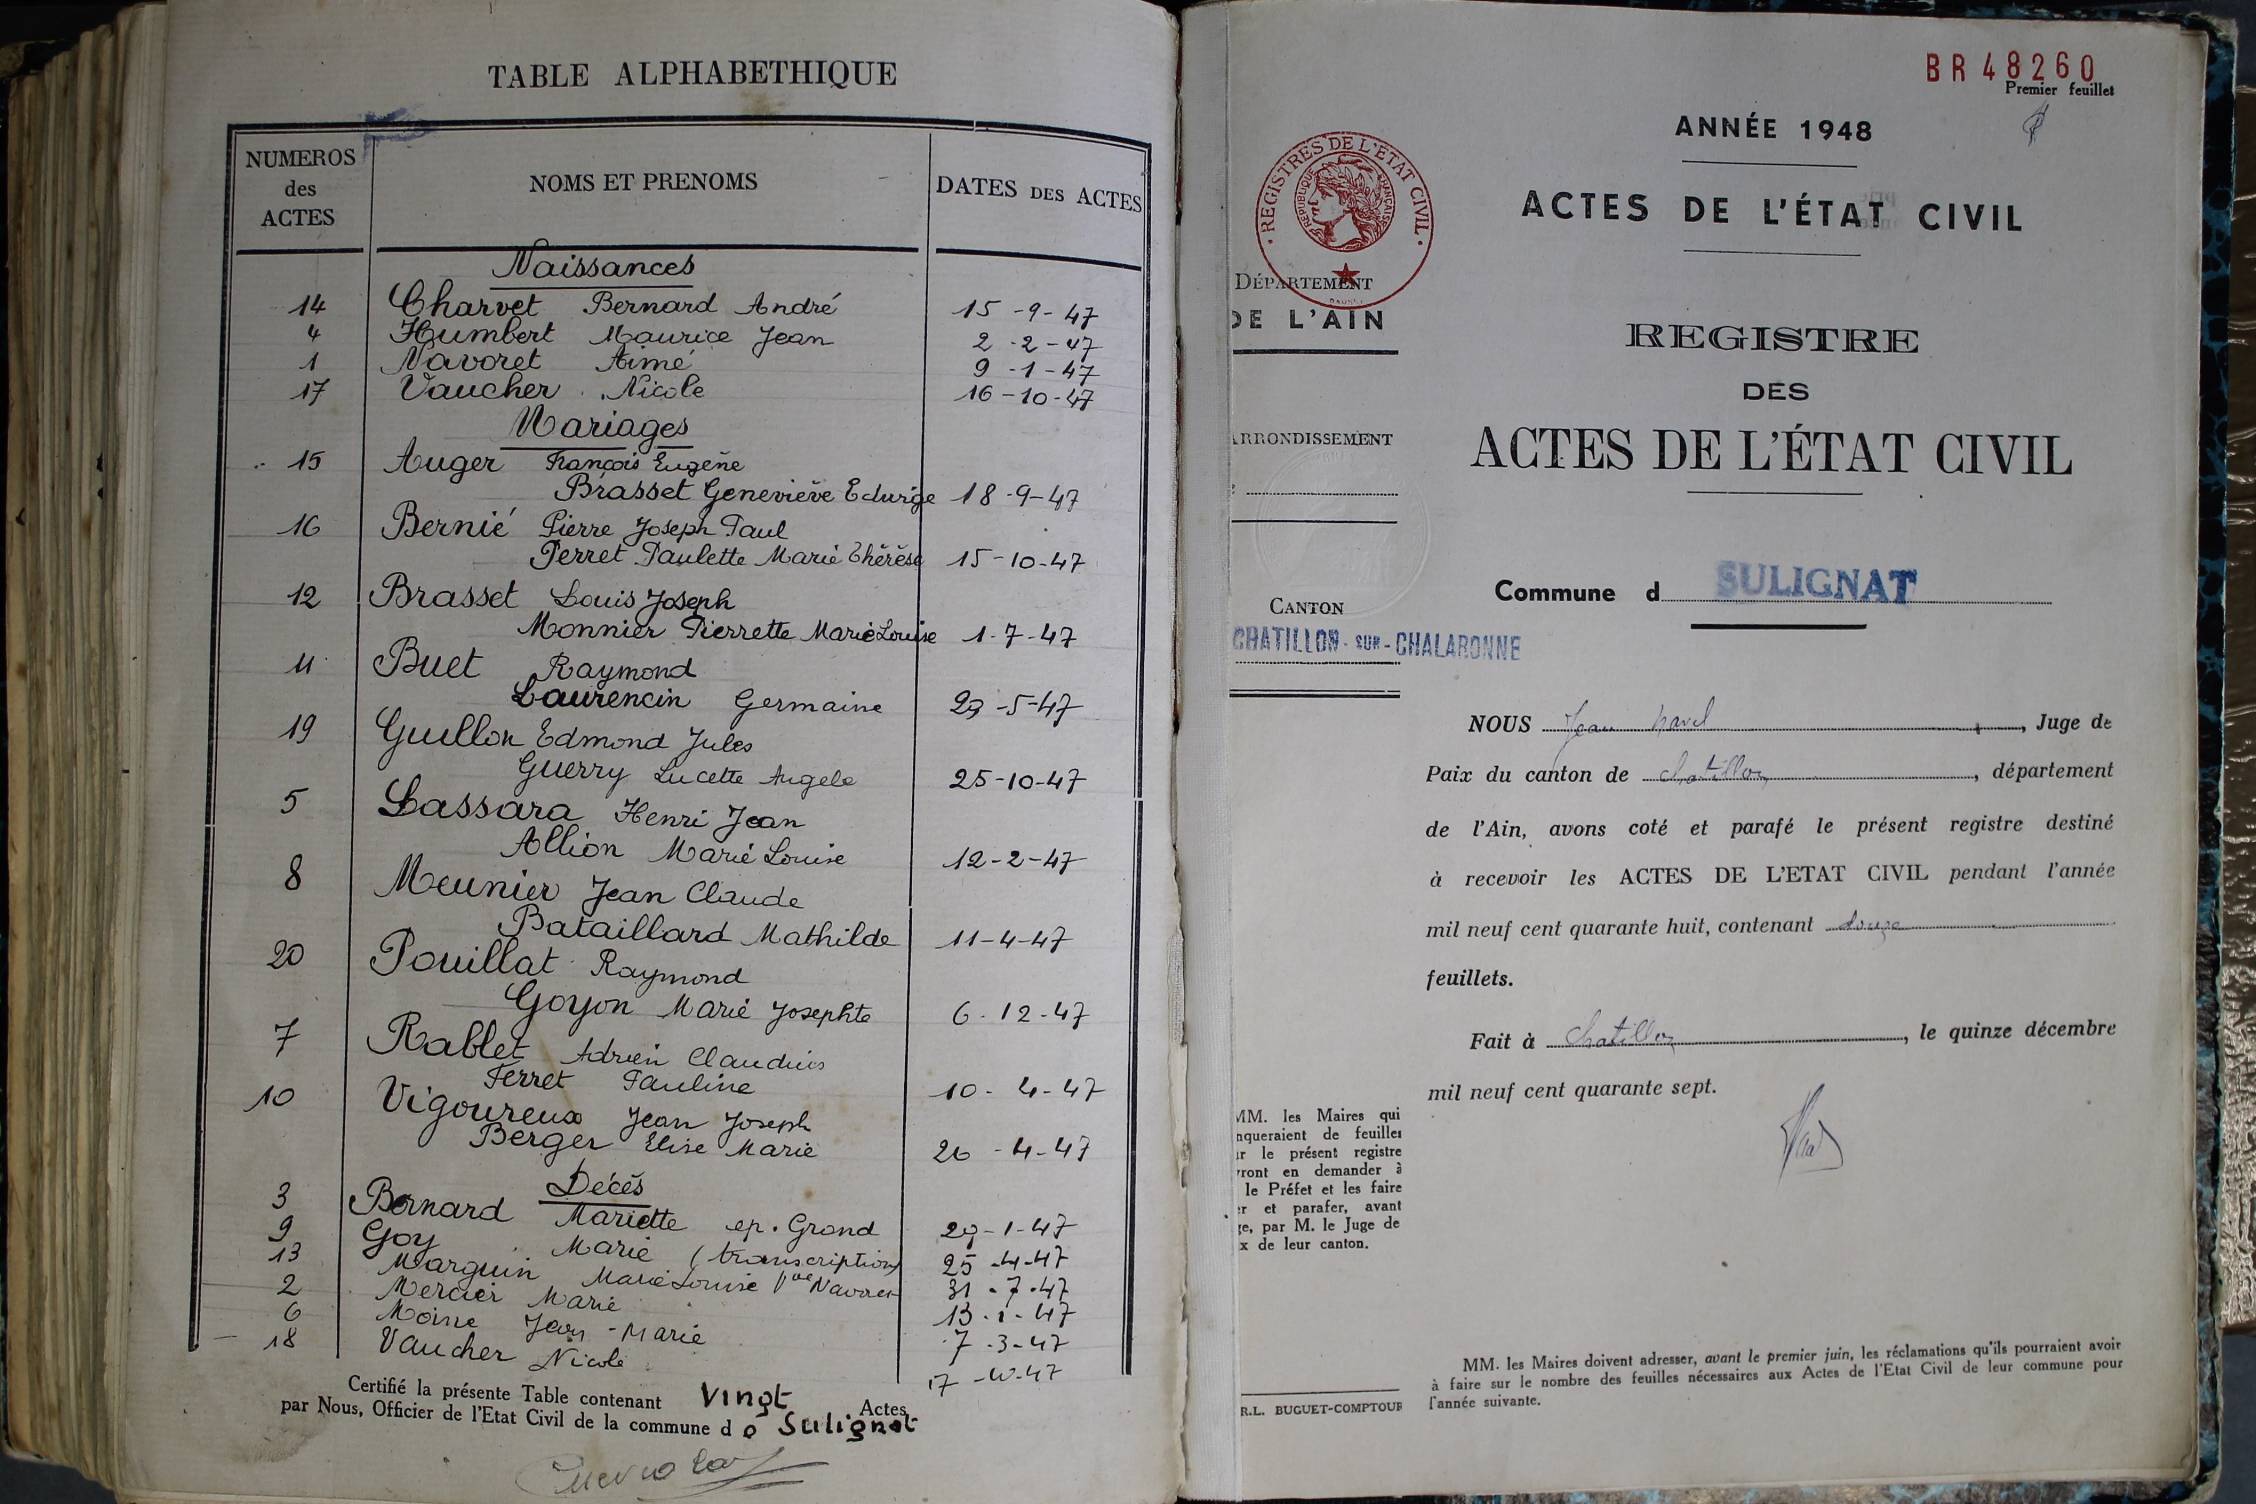 TABLE ALPHABETHIQUE
NUMEROS des ACTES
NOMS ET PRENOMS
DATES DES ACTES
Naissances
14 Charvet Bernard André 15-9-47
4 Humbert Maurice Jean 2-2-47
1 Navoret Aimé 9-1-47
17 Vaucher Nicole 16-10-47
Mariages
15 Auger François Eugène
Brasset Geneviève Edwige 18-9-47
16 Bernié Pierre Joseph Paul
Perret Paulette Marie Thérèse 15-10-47
12 Brasset Louis Joseph
Monnier Pierrette Marie Louise 1-7-47
11 Buet Raymond
Laurencin Germaine 29-5-47
19 Guillon Edmond Jules
Guerry Lucette Angele 25-10-47
5 Lassara Henri Jean
Allion Marie Louise 12-2-47
8 Meunier Jean Claude
Bataillard Mathilde 11-4-47
20 Pouillat Raymond
Goyon Marie Josephte 6-12-47
7 Rablet Adrien Claudius
Ferret Pauline 10-4-47
10 Vigoureux Jean Joseph
Berger Elise Marie 26-4-47
Décès
3 Bernard Mariette ep. Grand 29-1-47
9 Goy Marie (transcription) 25-4-47
13 Marguin Marie Louise Vve Navoret 31-7-47
2 Mercier Marie 13-1-47
6 Moine Jean-Marie 7-3-47
18 Vaucher Nicole 17-10-47
Certifié la présente Table contenant Vingt Actes
par Nous, Officier de l'Etat Civil de la commune d e Sulignat
BR 48260
Premier feuillet
ANNÉE 1948
ACTES DE L'ÉTAT CIVIL
REGISTRES DE L'ETAT CIVIL
REPUBLIQUE FRANÇAISE
DÉPARTEMENT
DE L'AIN
ARRONDISSEMENT
CANTON
CHATILLON-SUR-CHALARONNE
REGISTRE
DES
ACTES DE L'ÉTAT CIVIL
Commune d SULIGNAT
NOUS Jean , Juge de
Paix du canton de chatillon, département
de l'Ain, avons coté et parafé le présent registre destiné
à recevoir les ACTES DE L'ETAT CIVIL pendant l'année
mil neuf cent quarante huit, contenant douze
feuillets.
Fait à Chatillon, le quinze décembre
mil neuf cent quarante sept.
MM. les Maires qui
nqueraient de feuilles
ur le présent registre
vront en demander à
le Préfet et les faire
er et parafer, avant
ge, par M. le Juge de
x de leur canton.
R.L. BUGUET-COMPTOUR
MM. les Maires doivent adresser, avant le premier juin, les réclamations qu'ils pourraient avoir
à faire sur le nombre des feuilles nécessaires aux Actes de l'Etat Civil de leur commune pour
l'année suivante.